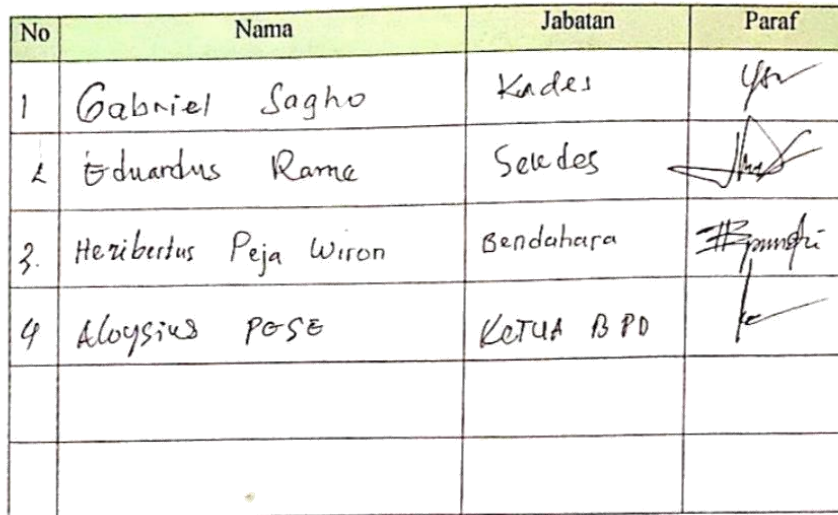 No Nama Jabatan Paraf
1 Gabriel Sagho Kades
2 Eduardus Rame Sekdes
3. Heribertus Peja Wiron Bendahara
4 Aloysius PESE KETUA BPD